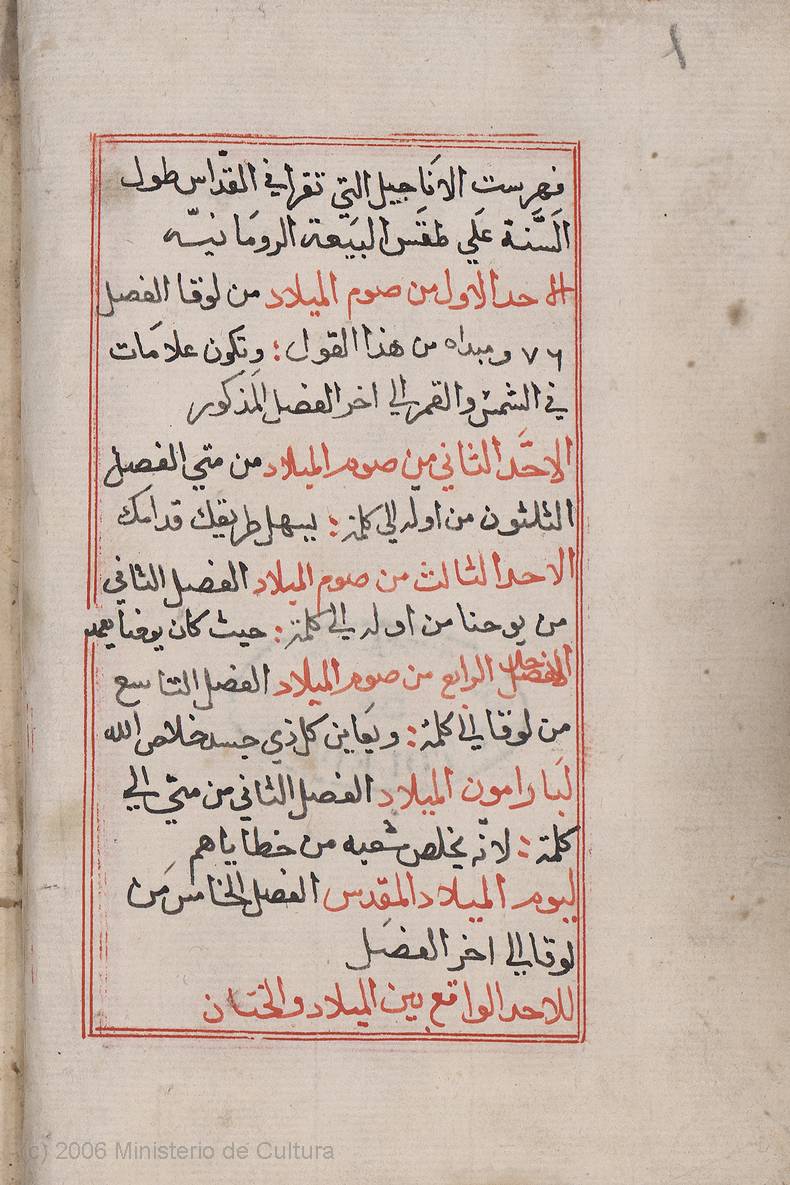 ١
فهرست الاناجيل التي تقرا في القدّاس طول
السَّنة علَي طقَس البيَعة الرومَانيّه
الاحد الاول من صوم الميلاد من لوقا الفصل
٧٦ ومبداه من هذا القول : وتكون علامَات
في الشمس والقمر الي اخر الفصل المذكور
الاحَد الثاني من صوم الميلاد من متي الفصل
الثلثون من اوله الي كلمة : يسهل طريقك قدامك
الاحد الثالث من صوم الميلاد الفصل الثاني
من يوحنا من اوله الي كلمة : حيث كان يوحنا يعمد
الاحد الرابع من صوم الميلاد الفصل التاسع
من لوقا الي كلمة : ويعَاين كل ذي جسد خلاص الله
لبَارامون الميلاد الفصل الثاني من متي الي
كلمة : لانّه يخلص شعبه من خطاياهم
ليوم الميلاد المقدس الفصل الخامس مَن
لوقا الي اخر الفصَل
للاحد الواقع بين الميلاد والختَان
(c) 2006 Ministerio de Cultura